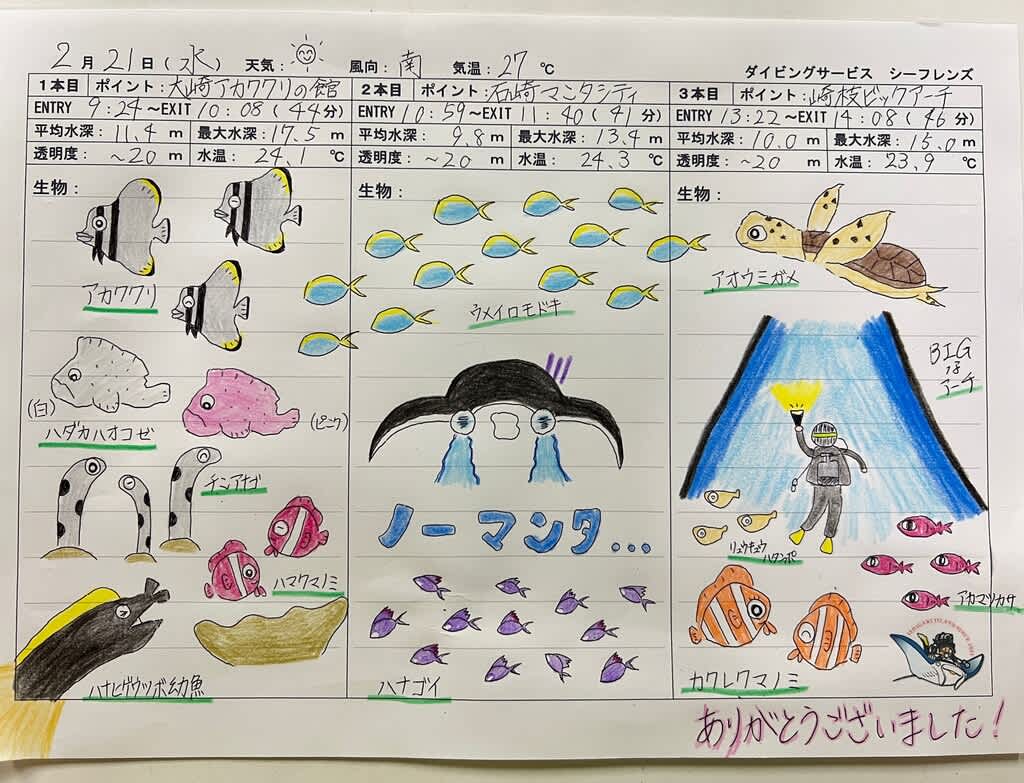 2月21日(水) 天気: 風向: 南 気温: 27 ℃
ダイビングサービス シーフレンズ
1本目 ポイント: 大崎アカククリの館
ENTRY 9:24 ~EXIT 10:08 (44分)
平均水深: 11.4 m 最大水深: 17.5 m
透明度: ~20 m 水温: 24.1 ℃
生物:
アカククリ
(白)
(ピンク)
ハダカハオコゼ
チンアナゴ
ハマクマノミ
ハナヒゲウツボ幼魚
2本目 ポイント: 石崎マンタシティ
ENTRY 10:59 ~EXIT 11:40 (41分)
平均水深: 9.8 m 最大水深: 13.4 m
透明度: ~20 m 水温: 24.3 ℃
生物:
ウメイロモドキ
ノーマンタ...
ハナゴイ
3本目 ポイント: 崎枝ビックアーチ
ENTRY 13:22 ~EXIT 14:08 (46分)
平均水深: 10.0 m 最大水深: 15.0 m
透明度: ~20 m 水温: 23.9 ℃
生物:
アオウミガメ
BIG
な
アーチ
リュウキュウ
ハタンポ
アカマツカサ
カクレクマノミ
ありがとうございました!